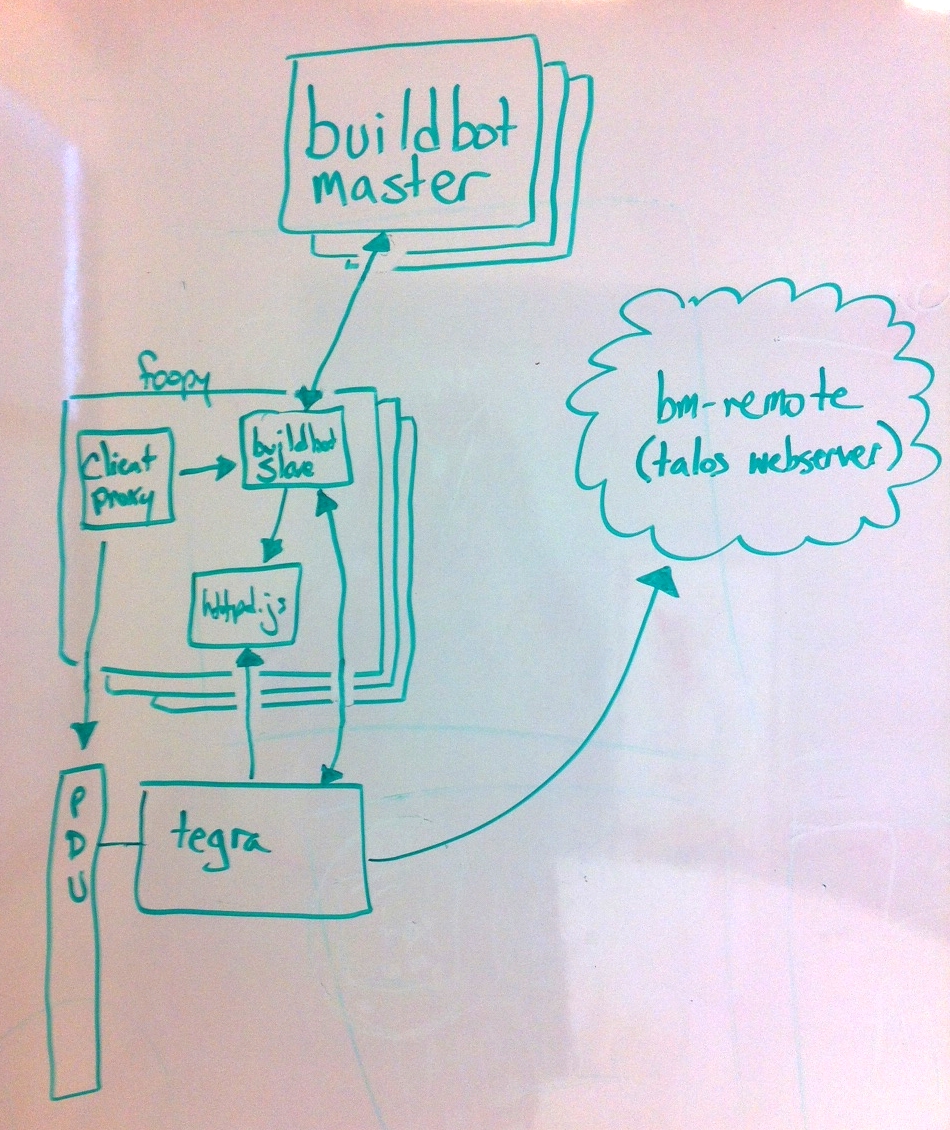 buildbot
master
foopy
client
proxy
buildbot
slave
httpd.js
bm-remote
(talos webserver)
PDU
tegra